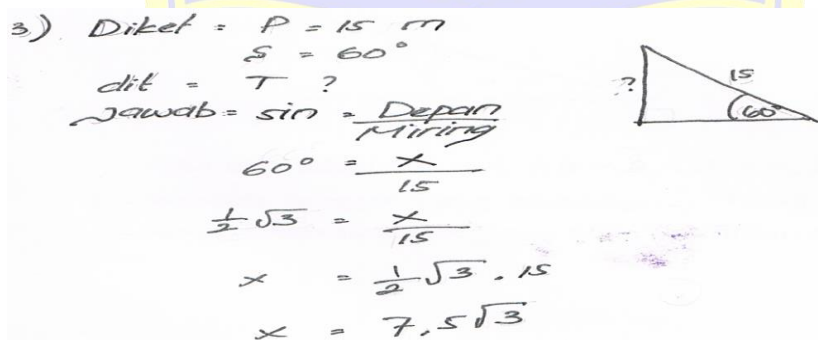 3) Diket = P = 15 m
S = 60°
dit = T ?
Jawab = sin = Depan/Miring
60° = x/15
1/2 √3 = x/15
x = 1/2 √3 . 15
x = 7,5√3
?
15
60°